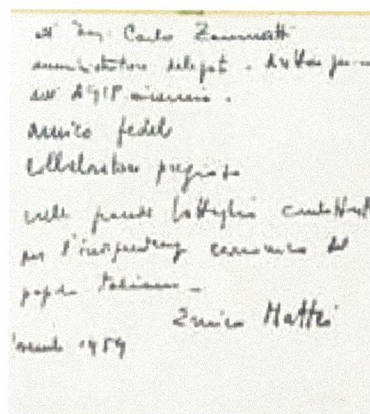 all' Ing. Carlo Zanmatti
amministratore delegato - direttore gen
dell'AGIP mineraria.
amico fedele
collaboratore pregiato
nella grande battaglia combattuta
per l'indipendenza economica del
popolo italiano -
Enrico Mattei
1959